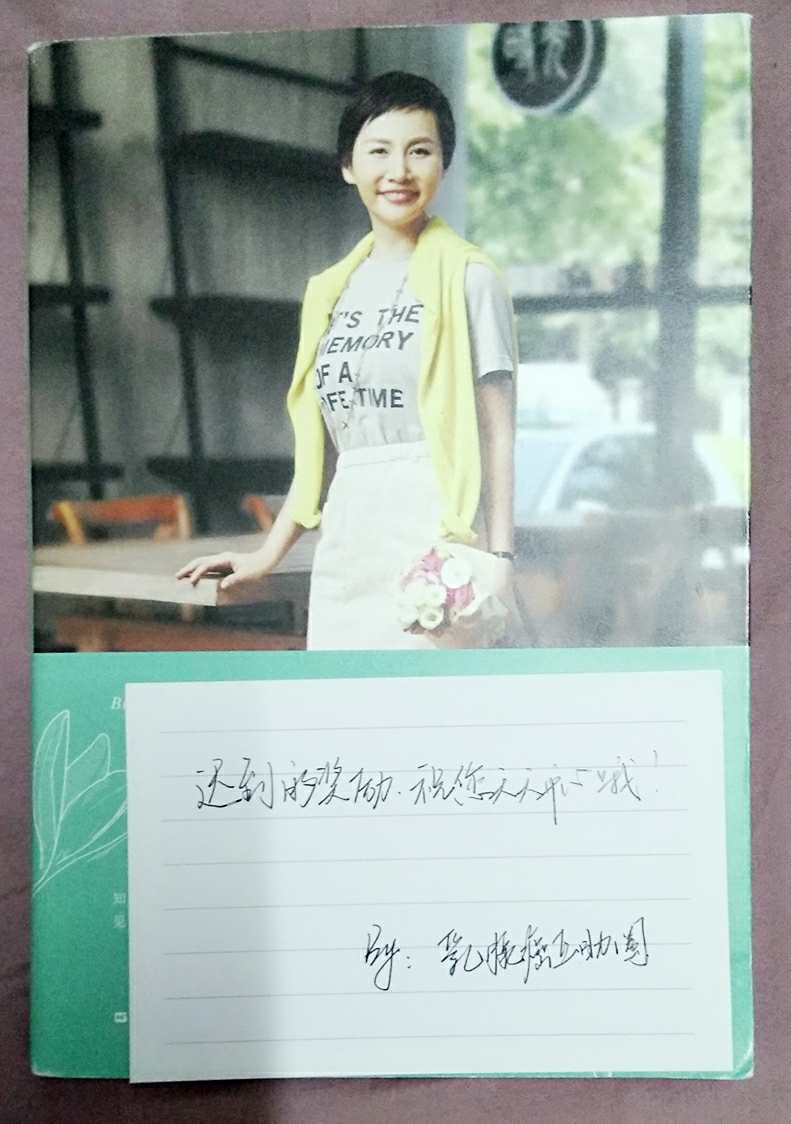 IT'S THE
MEMORY
OF A
LIFE TIME
迟到的奖励.祝您天天开心哦!
By: 乳腺癌互助圈
知
见